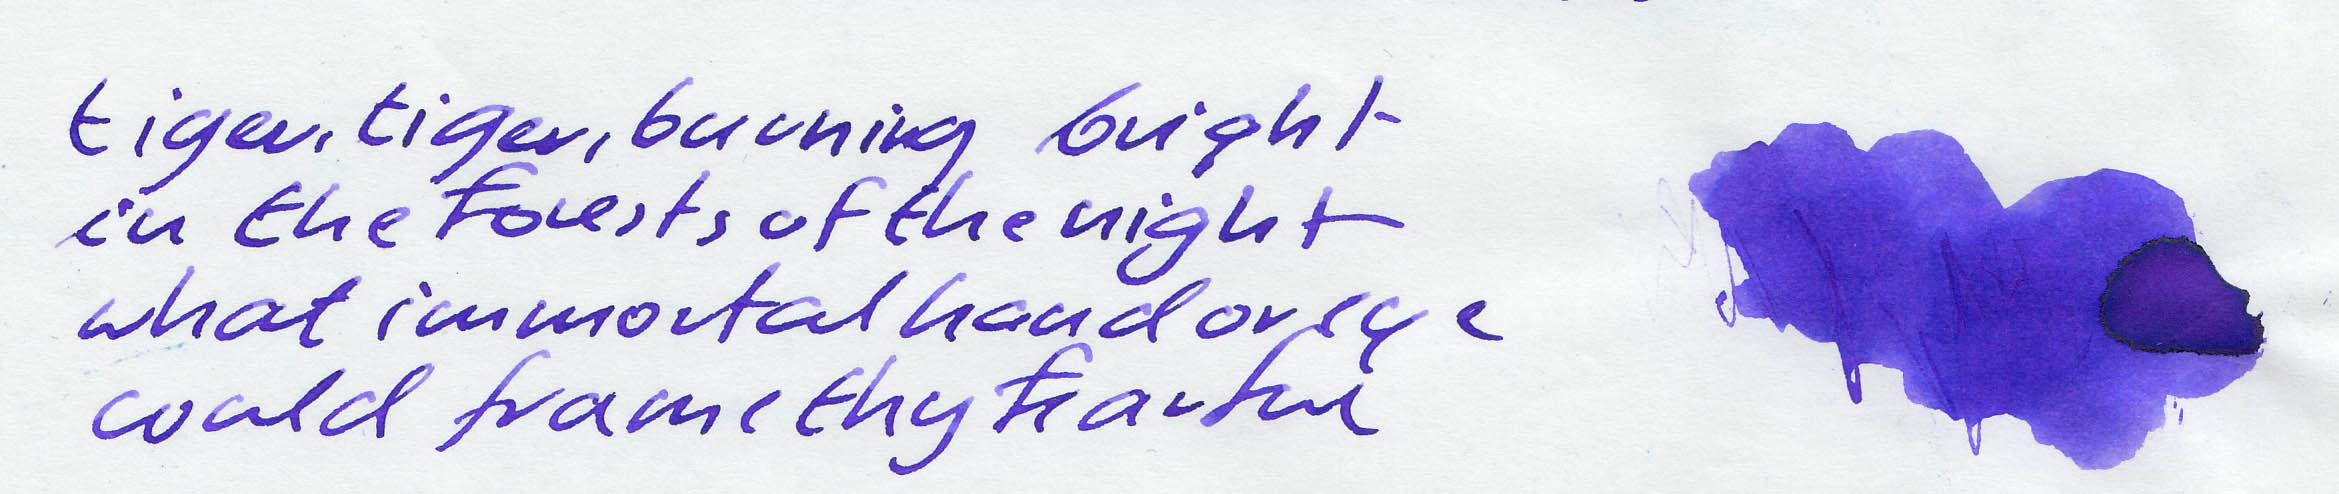 tiger, tiger, burning bright
in the forests of the night
what immortal hand or eye
could frame thy fearful